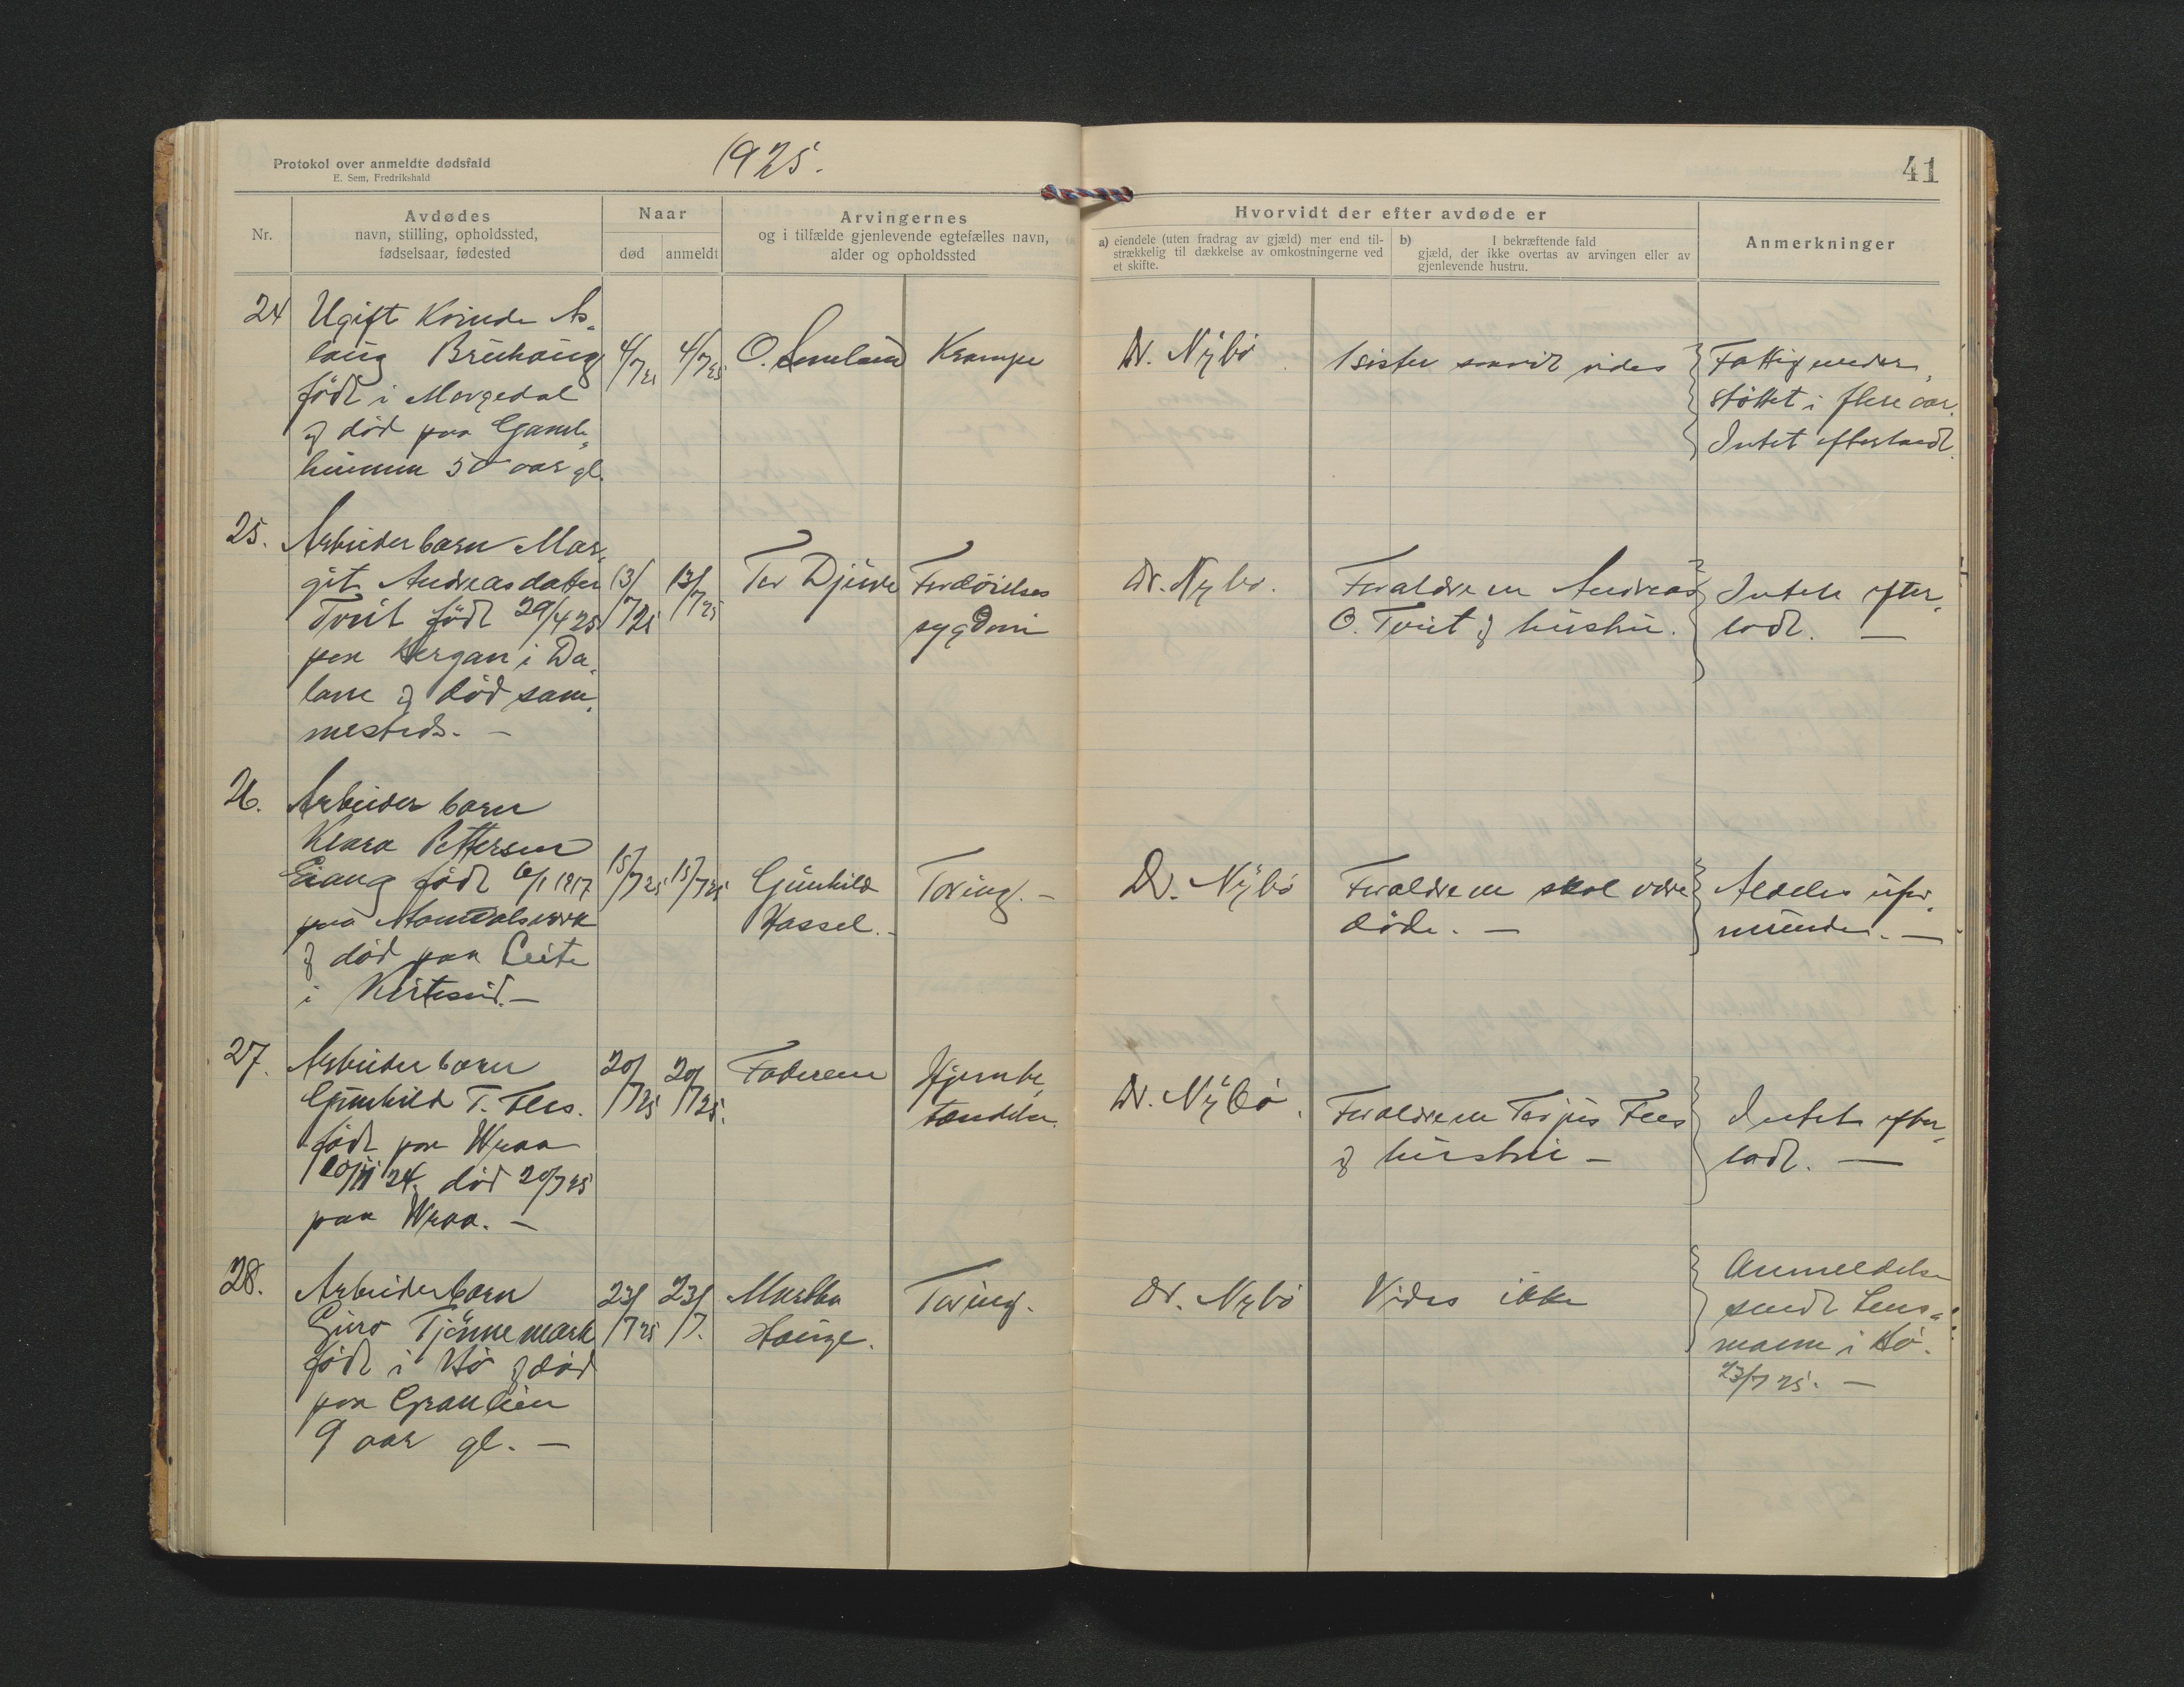 Protokol over anmeldte dødsfald
E. Sem, Fredrikshald
1925.
41
Nr.
Avdødes
navn, stilling, opholdssted,
fødselsaar, fødested
Naar
død
anmeldt
Arvingernes
og i tilfælde gjenlevende egtefælles navn,
alder og opholdssted
Hvorvidt der efter avdøde er
a) eiendele (uten fradrag av gjæld) mer end til-
strækkelig til dækkelse av omkostningerne ved
et skifte.
b) I bekræftende fald
gjæld, der ikke overtas av arvingen eller av
gjenlevende hustru.
Anmerkninger
24
Ugift Kvinde As-
laug
født i Morgedal
og død paa
50 aar gl.
4/7 25
4/7 25
O.
Krampe
Dr. Nybö
1 søster saavidt vides
Fattigunder-
støttet i flere aar.
Intet efterladt.
25.
Arbeiderbarn Mar-
git Andreasdatter
Tveit født 29/4 25
paa Bergan i Da-
lane og død sam-
mesteds. —
13/7 25
13/7 25
Tor Djuve
Fordøielses
sygdom
Dr. Nybö.
Foraldrene Andreas
O. Tveit og hustru.
Intet efter-
ladt. —
26.
Arbeider barn
Klara Pettersen
født 6/1 1917
paa Aamdalsverk
og død paa Leite
i Kviteseid. —
15/7 25
15/7 25
Gunhild
Hassel. -
Tæring. —
Dr. Nybö
Foraldrene skal være
døde. —
Aldeles ufor-
muende. —
27.
Arbeider barn
Gunhild T. Fles.
født paa Wraa
24. død 20/7 25
paa Wraa. —
20/7 25
20/7 25.
Faderen
Hjernebe-
tændelse.
Dr. Nybö.
Foraldrene Torjus Fles
og hustru —
Intet efter-
ladt. —
28.
Arbeiderbarn
Guro Tjönnemark
født i Bø og død
paa Granlien
9 aar gl. —
23/7 25
23/7.
Martha
Hauge.
Tæring.
Dr. Nybö
Vides ikke
Anmeldelse
sendt Lens-
mann i Bø.
23/7 25. —